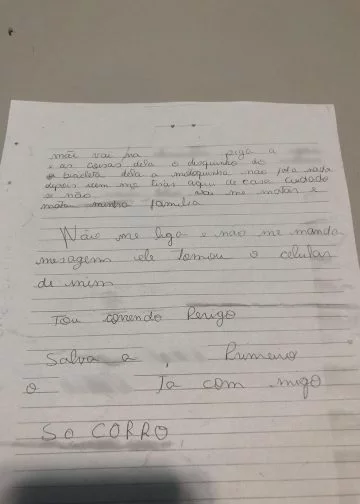 mãe vai na piga a
e as coisas dela o disquinho do
bicicleta dela a motoquinha não fala nada
depois vem me tirar aqui de casa cuidado
se não vai me matar e
mata minha familia
Não me liga e não me manda
mesagem ele tomou o celular
de mim
Tou correndo Perigo
Salva a , Primeiro
o Ta com migo
SO CORRO